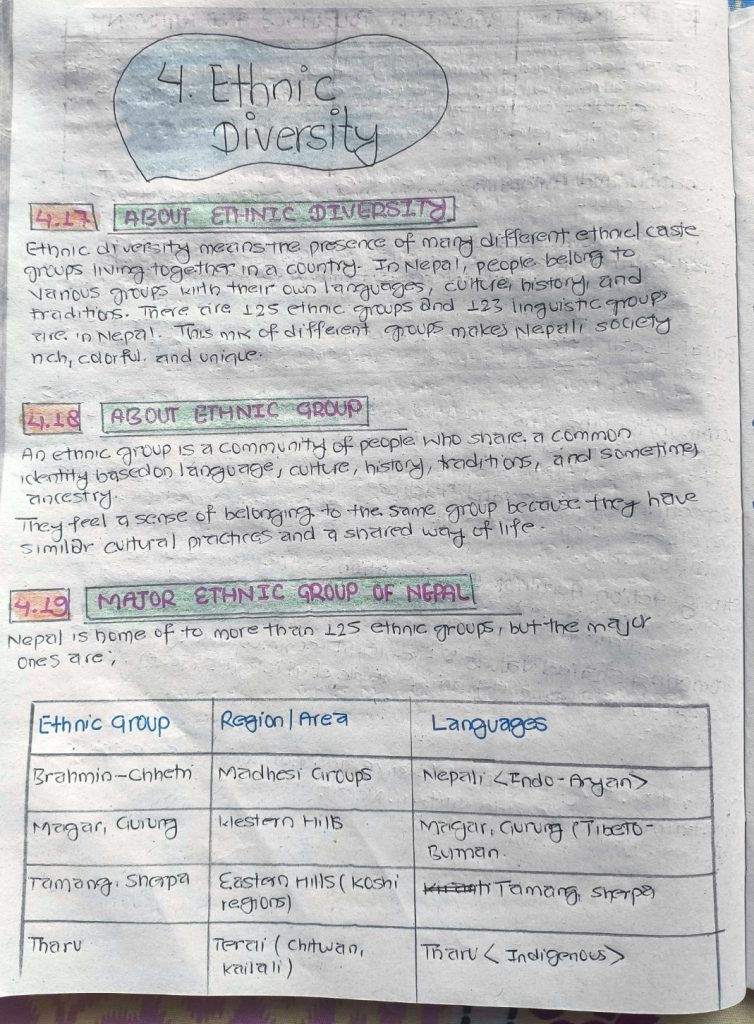 4. Ethnic
Diversity
4.17 ABOUT ETHNIC DIVERSITY
Ethnic diversity means the presence of many different ethnic/ caste
groups living together in a country. In Nepal, people belong to
various groups with their own languages, culture, history, and
traditions. There are 125 ethnic groups and 123 linguistic groups
are in Nepal. This mix of different groups makes Nepali society
rich, colorful. and unique.
4.18 ABOUT ETHNIC GROUP
An ethnic group is a community of people who share a common
identity based on language, culture, history, traditions, and sometimes
ancestry.
They feel a sense of belonging to the same group because they have
similar cultural practices and a shared way of life.
4.19 MAJOR ETHNIC GROUP OF NEPAL
Nepal is home of to more than 125 ethnic groups, but the major
ones are;
Ethnic Group Region/Area Languages
Brahmin-Chhetri Madhesi Groups Nepali <Indo-Aryan>
Magar, Gurung Western Hills Magar, Gurung (Tibeto-
Buman.
Tamang, Sherpa Eastern Hills (Koshi Tamang, Sherpa
regions)
Tharu Terai (Chitwan, Tharu < Indigenous>
Kailali)